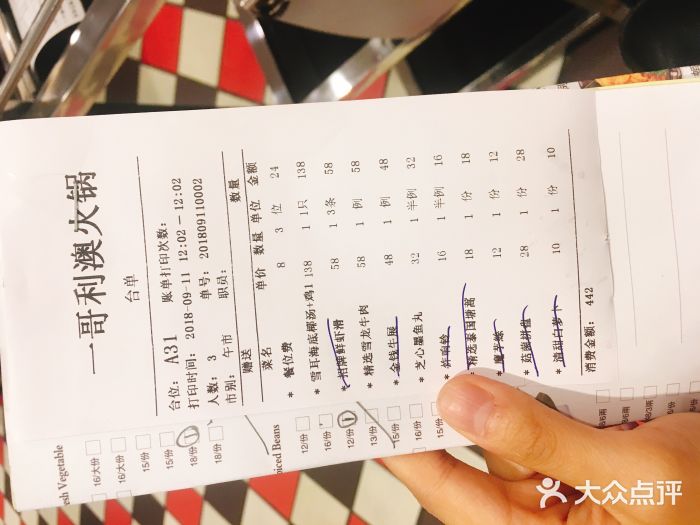 一哥利澳火锅
台单
台位: A31 账单打印次数:
打印时间: 2018-09-11 12:02-12:02
人数: 3 单号: 201809110002
市别: 午市 职员:
赠送 数量
菜名 单价 数量 单位 金额
* 餐位费 8 3 位 24
* 雪耳海底椰汤+鸡1 138 1 1只 138
* 招牌鲜虾滑 58 1 3条 58
* 精选雪龙牛肉 58 1 例 58
* 金钱牛展 48 1 例 48
* 芝心墨鱼丸 32 1 半例 32
* 炸响铃 16 1 半例 16
* 精选泰国塘蒿 18 1 份 18
* 12 1 份 12
* 菇菌拼盘 28 1 份 28
* 清甜白萝卜 10 1 份 10
消费金额: 442
esh Vegetable
16/大份
16/大份
15/份
15/份
18/份 1
18/份
iced Beans
12/份
16/份
12/份 1
13/份
15/份
15/份
大众点评